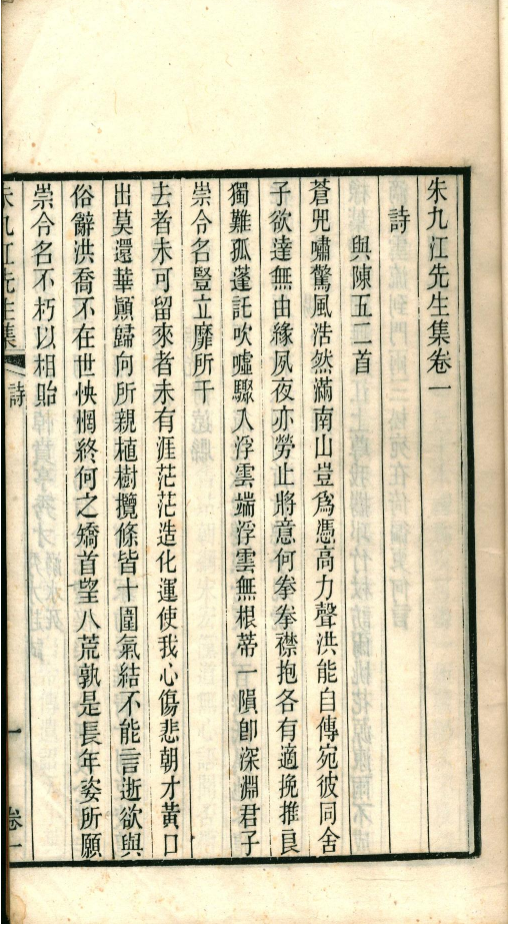 朱九江先生集卷一
詩
與陳五二首
蒼兕嘯驚風浩然滿南山豈爲憑高力聲洪能自傳宛彼同舍
子欲達無由緣夙夜亦勞止將意何拳拳襟抱各有適挽推良
獨難孤蓬託吹噓驟入浮雲端浮雲無根蒂一隕卽深淵君子
崇令名豎立靡所干
去者未可留來者未有涯茫茫造化運使我心傷悲朝才黃口
出莫還華顚歸向所親植樹攬條皆十圍氣結不能言逝欲與
俗辭洪喬不在世怏惘終何之矯首望八荒孰是長年姿所願
崇令名不朽以相貽
朱九江先生集
詩
一
卷一